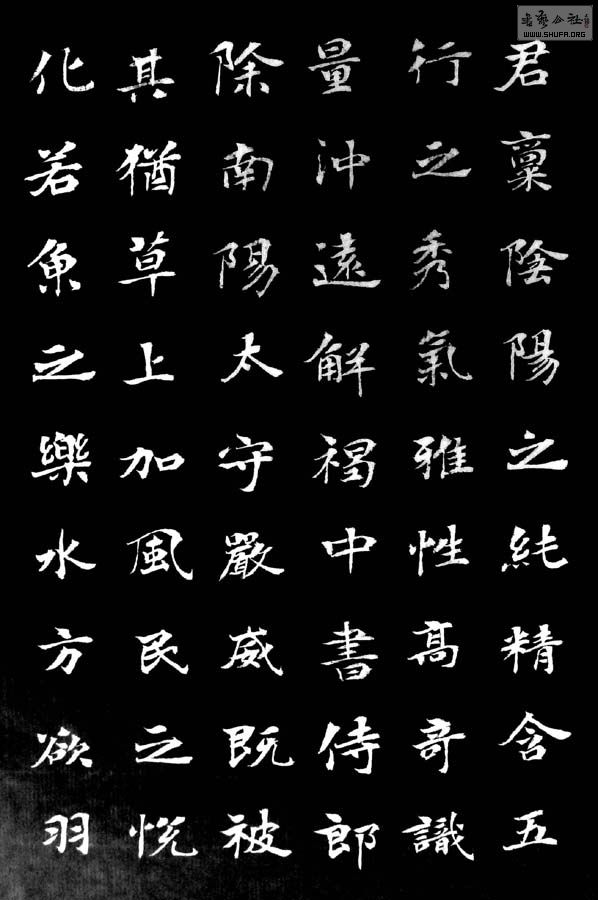 君稟陰陽之純精含五
行之秀氣雅性高奇識
量沖遠解褐中書侍郎
除南陽太守嚴威既被
其猶草上加風民之悅
化若魚之樂水方欲羽
書藝公社
WWW.SHUFA.ORG